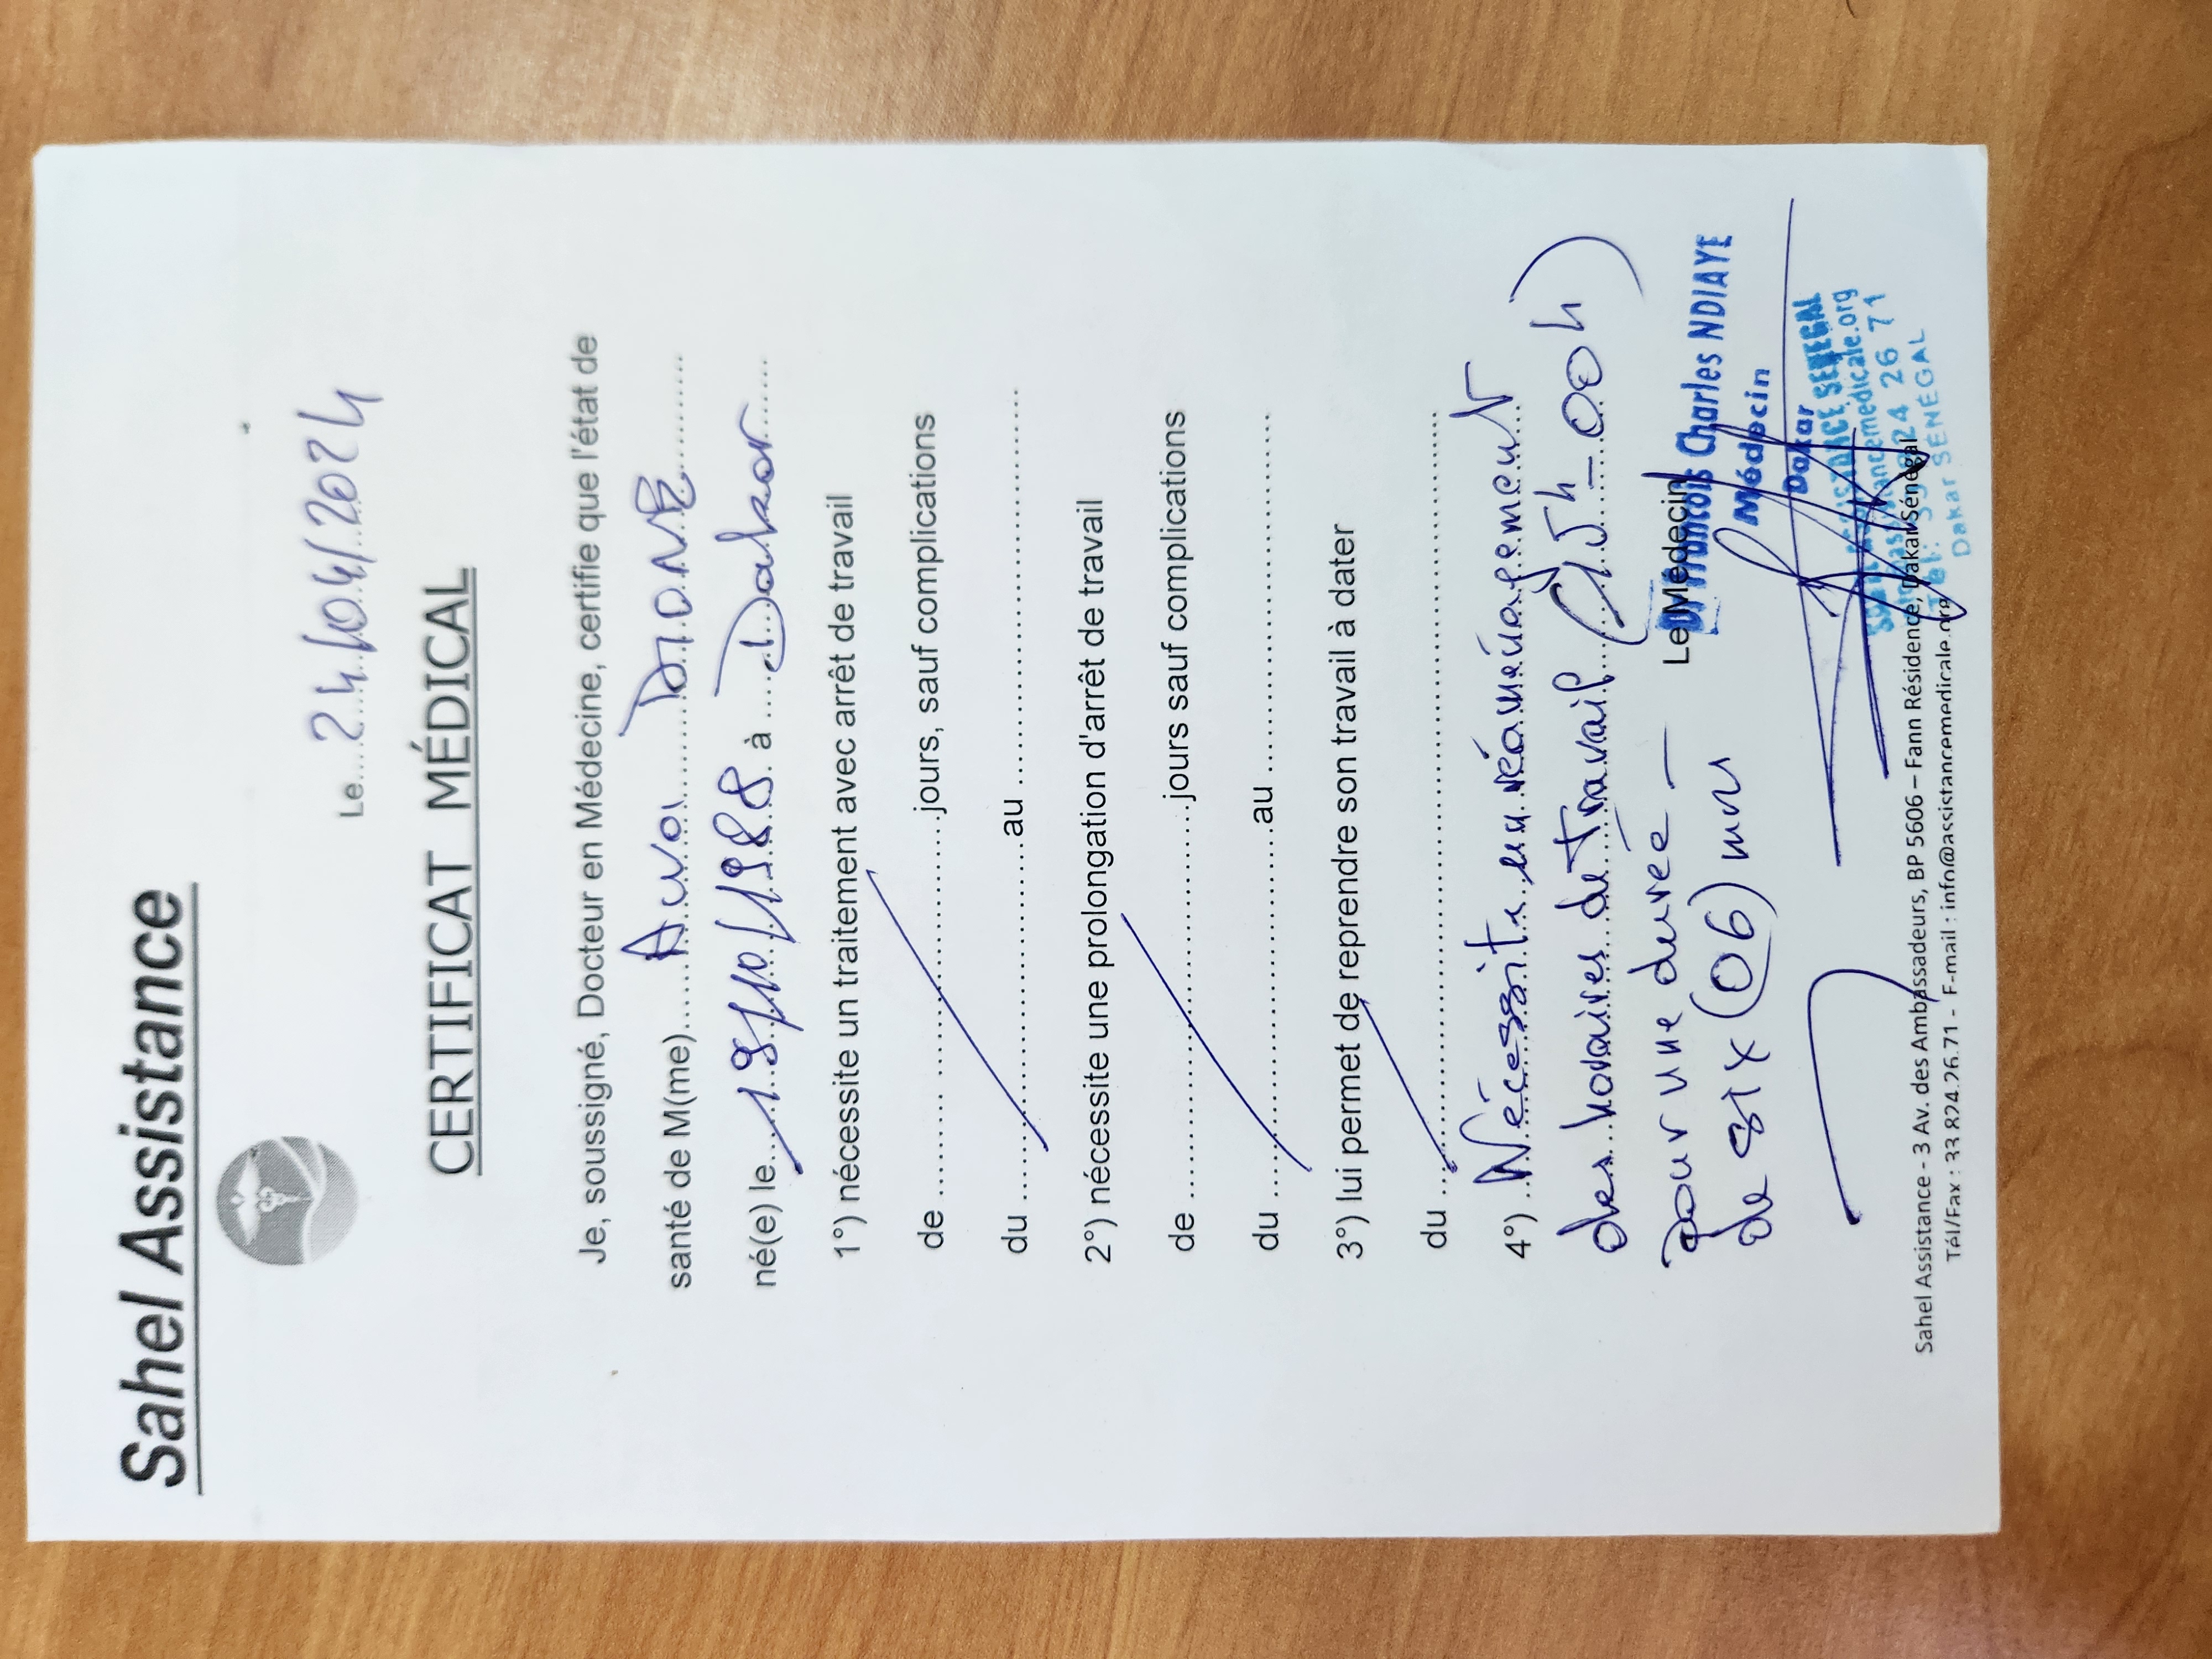 Sahel Assistance
Le....24/04/2024
CERTIFICAT MÉDICAL
Je, soussigné, Docteur en Médecine, certifie que l'état de
santé de M(me)...... Awa DIONE
né(e) le....19/10/1988 à ....Dakar
1°) nécessite un traitement avec arrêt de travail
de .......... ..............jours, sauf complications
du ..............................au ..............................
2°) nécessite une prolongation d'arrêt de travail
de ..............................jours sauf complications
du ..............................au ..............................
3°) lui permet de reprendre son travail à dater
du ............................................................
4°) Nécessite un réaménagement
des horaires de travail (15h - 00h)
pour une durée -
de six (06) mois
Le Médecin
Dr François Charles NDIAYE
Médecin
Dakar
ASSISTANCE SENEGAL
24 26 71
Dakar SÉNÉGAL
Sahel Assistance - 3 Av. des Ambassadeurs, BP 5606 – Fann Résidence, Dakar Sénégal
Tél/Fax : 33.824.26.71 - E-mail : info@assistancemedicale.org